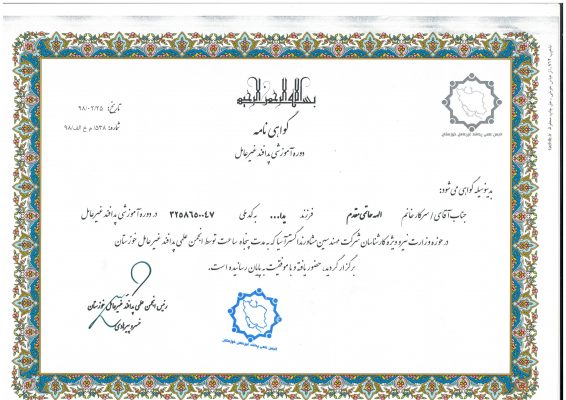 بسم الله الرحمن الرحیم
تاریخ: ۹۸/۰۲/۲۵
شماره: ۱۵۲۸/م ع الف/۹۸
گواهی نامه
دوره آموزشی پدافند غیرعامل
انجمن علمی پدافند غیرعامل خوزستان
بدینوسیله گواهی می شود:
جناب آقای / سرکار خانم الهه حاتمی مقدم فرزند یدا... به کد ملی ۳۲۵۸۶۵۰۰۴۷ در دوره آموزشی پدافند غیرعامل
در حوزه وزارت نیرو ویژه کارشناسان شرکت مهندسین مشاور زند اکسترآسیا که به مدت پنجاه ساعت توسط انجمن علمی پدافند غیرعامل خوزستان
برگزار گردید، حضور یافته و با موفقیت به پایان رسانیده است.
رئیس انجمن علمی پدافند غیرعامل خوزستان
خسرو پیرهادی
انجمن علمی پدافند غیرعامل خوزستان